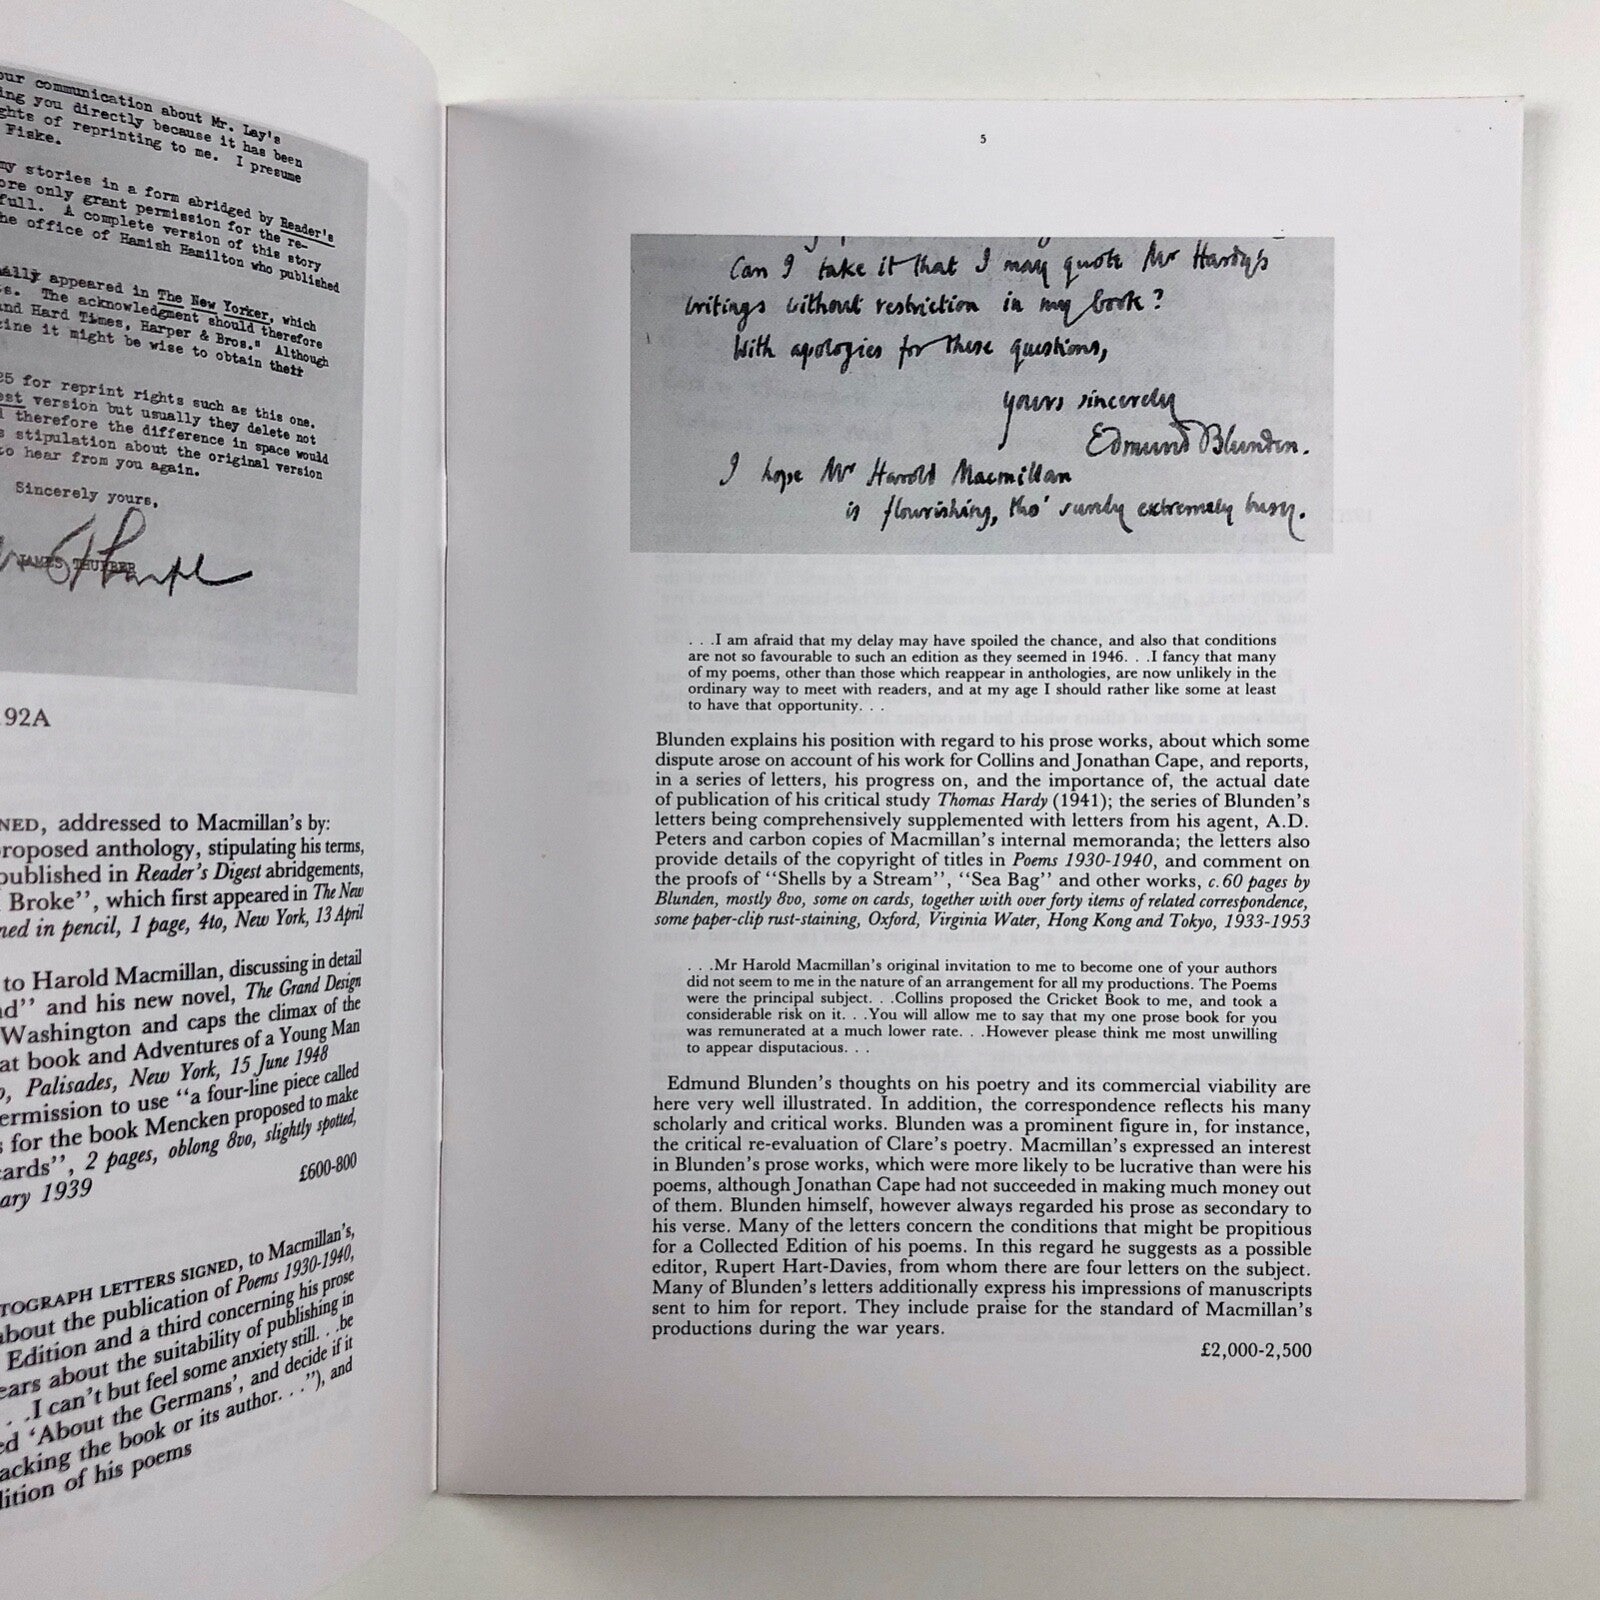 our communication about Mr. Lay's
ing you directly because it has been
ghts of reprinting to me. I presume
Fiske.
my stories in a form abridged by Reader's
ore only grant permission for the re-
full. A complete version of this story
he office of Hamish Hamilton who published
ally appeared in The New Yorker, which
s. The acknowledgment should therefore
and Hard Times, Harper & Bros." Although
zine it might be wise to obtain their
25 for reprint rights such as this one.
est version but usually they delete not
d therefore the difference in space would
s stipulation about the original version
to hear from you again.
Sincerely yours,
JAMES THURBER
92A
NED, addressed to Macmillan's by:
roposed anthology, stipulating his terms,
published in Reader's Digest abridgements,
Broke", which first appeared in The New
ned in pencil, 1 page, 4to, New York, 13 April
to Harold Macmillan, discussing in detail
nd" and his new novel, The Grand Design
Washington and caps the climax of the
at book and Adventures of a Young Man
o, Palisades, New York, 15 June 1948
ermission to use "a four-line piece called
s for the book Mencken proposed to make
cards", 2 pages, oblong 8vo, slightly spotted,
ary 1939
£600-800
TOGRAPH LETTERS SIGNED, to Macmillan's,
about the publication of Poems 1930-1940,
Edition and a third concerning his prose
ears about the suitability of publishing in
. . .I can't but feel some anxiety still. . .be
ed 'About the Germans', and decide if it
acking the book or its author. . ."), and
lition of his poems
5
Can I take it that I may quote Mr Hardy's
writings without restriction in my book?
With apologies for these questions,
yours sincerely
Edmund Blunden.
I hope Mr Harold Macmillan
is flourishing, tho' surely extremely busy.
. . .I am afraid that my delay may have spoiled the chance, and also that conditions
are not so favourable to such an edition as they seemed in 1946. . .I fancy that many
of my poems, other than those which reappear in anthologies, are now unlikely in the
ordinary way to meet with readers, and at my age I should rather like some at least
to have that opportunity. . .
Blunden explains his position with regard to his prose works, about which some
dispute arose on account of his work for Collins and Jonathan Cape, and reports,
in a series of letters, his progress on, and the importance of, the actual date
of publication of his critical study Thomas Hardy (1941); the series of Blunden's
letters being comprehensively supplemented with letters from his agent, A.D.
Peters and carbon copies of Macmillan's internal memoranda; the letters also
provide details of the copyright of titles in Poems 1930-1940, and comment on
the proofs of "Shells by a Stream", "Sea Bag" and other works, c.60 pages by
Blunden, mostly 8vo, some on cards, together with over forty items of related correspondence,
some paper-clip rust-staining, Oxford, Virginia Water, Hong Kong and Tokyo, 1933-1953
. . .Mr Harold Macmillan's original invitation to me to become one of your authors
did not seem to me in the nature of an arrangement for all my productions. The Poems
were the principal subject. . .Collins proposed the Cricket Book to me, and took a
considerable risk on it. . .You will allow me to say that my one prose book for you
was remunerated at a much lower rate. . .However please think me most unwilling
to appear disputacious. . .
Edmund Blunden's thoughts on his poetry and its commercial viability are
here very well illustrated. In addition, the correspondence reflects his many
scholarly and critical works. Blunden was a prominent figure in, for instance,
the critical re-evaluation of Clare's poetry. Macmillan's expressed an interest
in Blunden's prose works, which were more likely to be lucrative than were his
poems, although Jonathan Cape had not succeeded in making much money out
of them. Blunden himself, however always regarded his prose as secondary to
his verse. Many of the letters concern the conditions that might be propitious
for a Collected Edition of his poems. In this regard he suggests as a possible
editor, Rupert Hart-Davies, from whom there are four letters on the subject.
Many of Blunden's letters additionally express his impressions of manuscripts
sent to him for report. They include praise for the standard of Macmillan's
productions during the war years.
£2,000-2,500